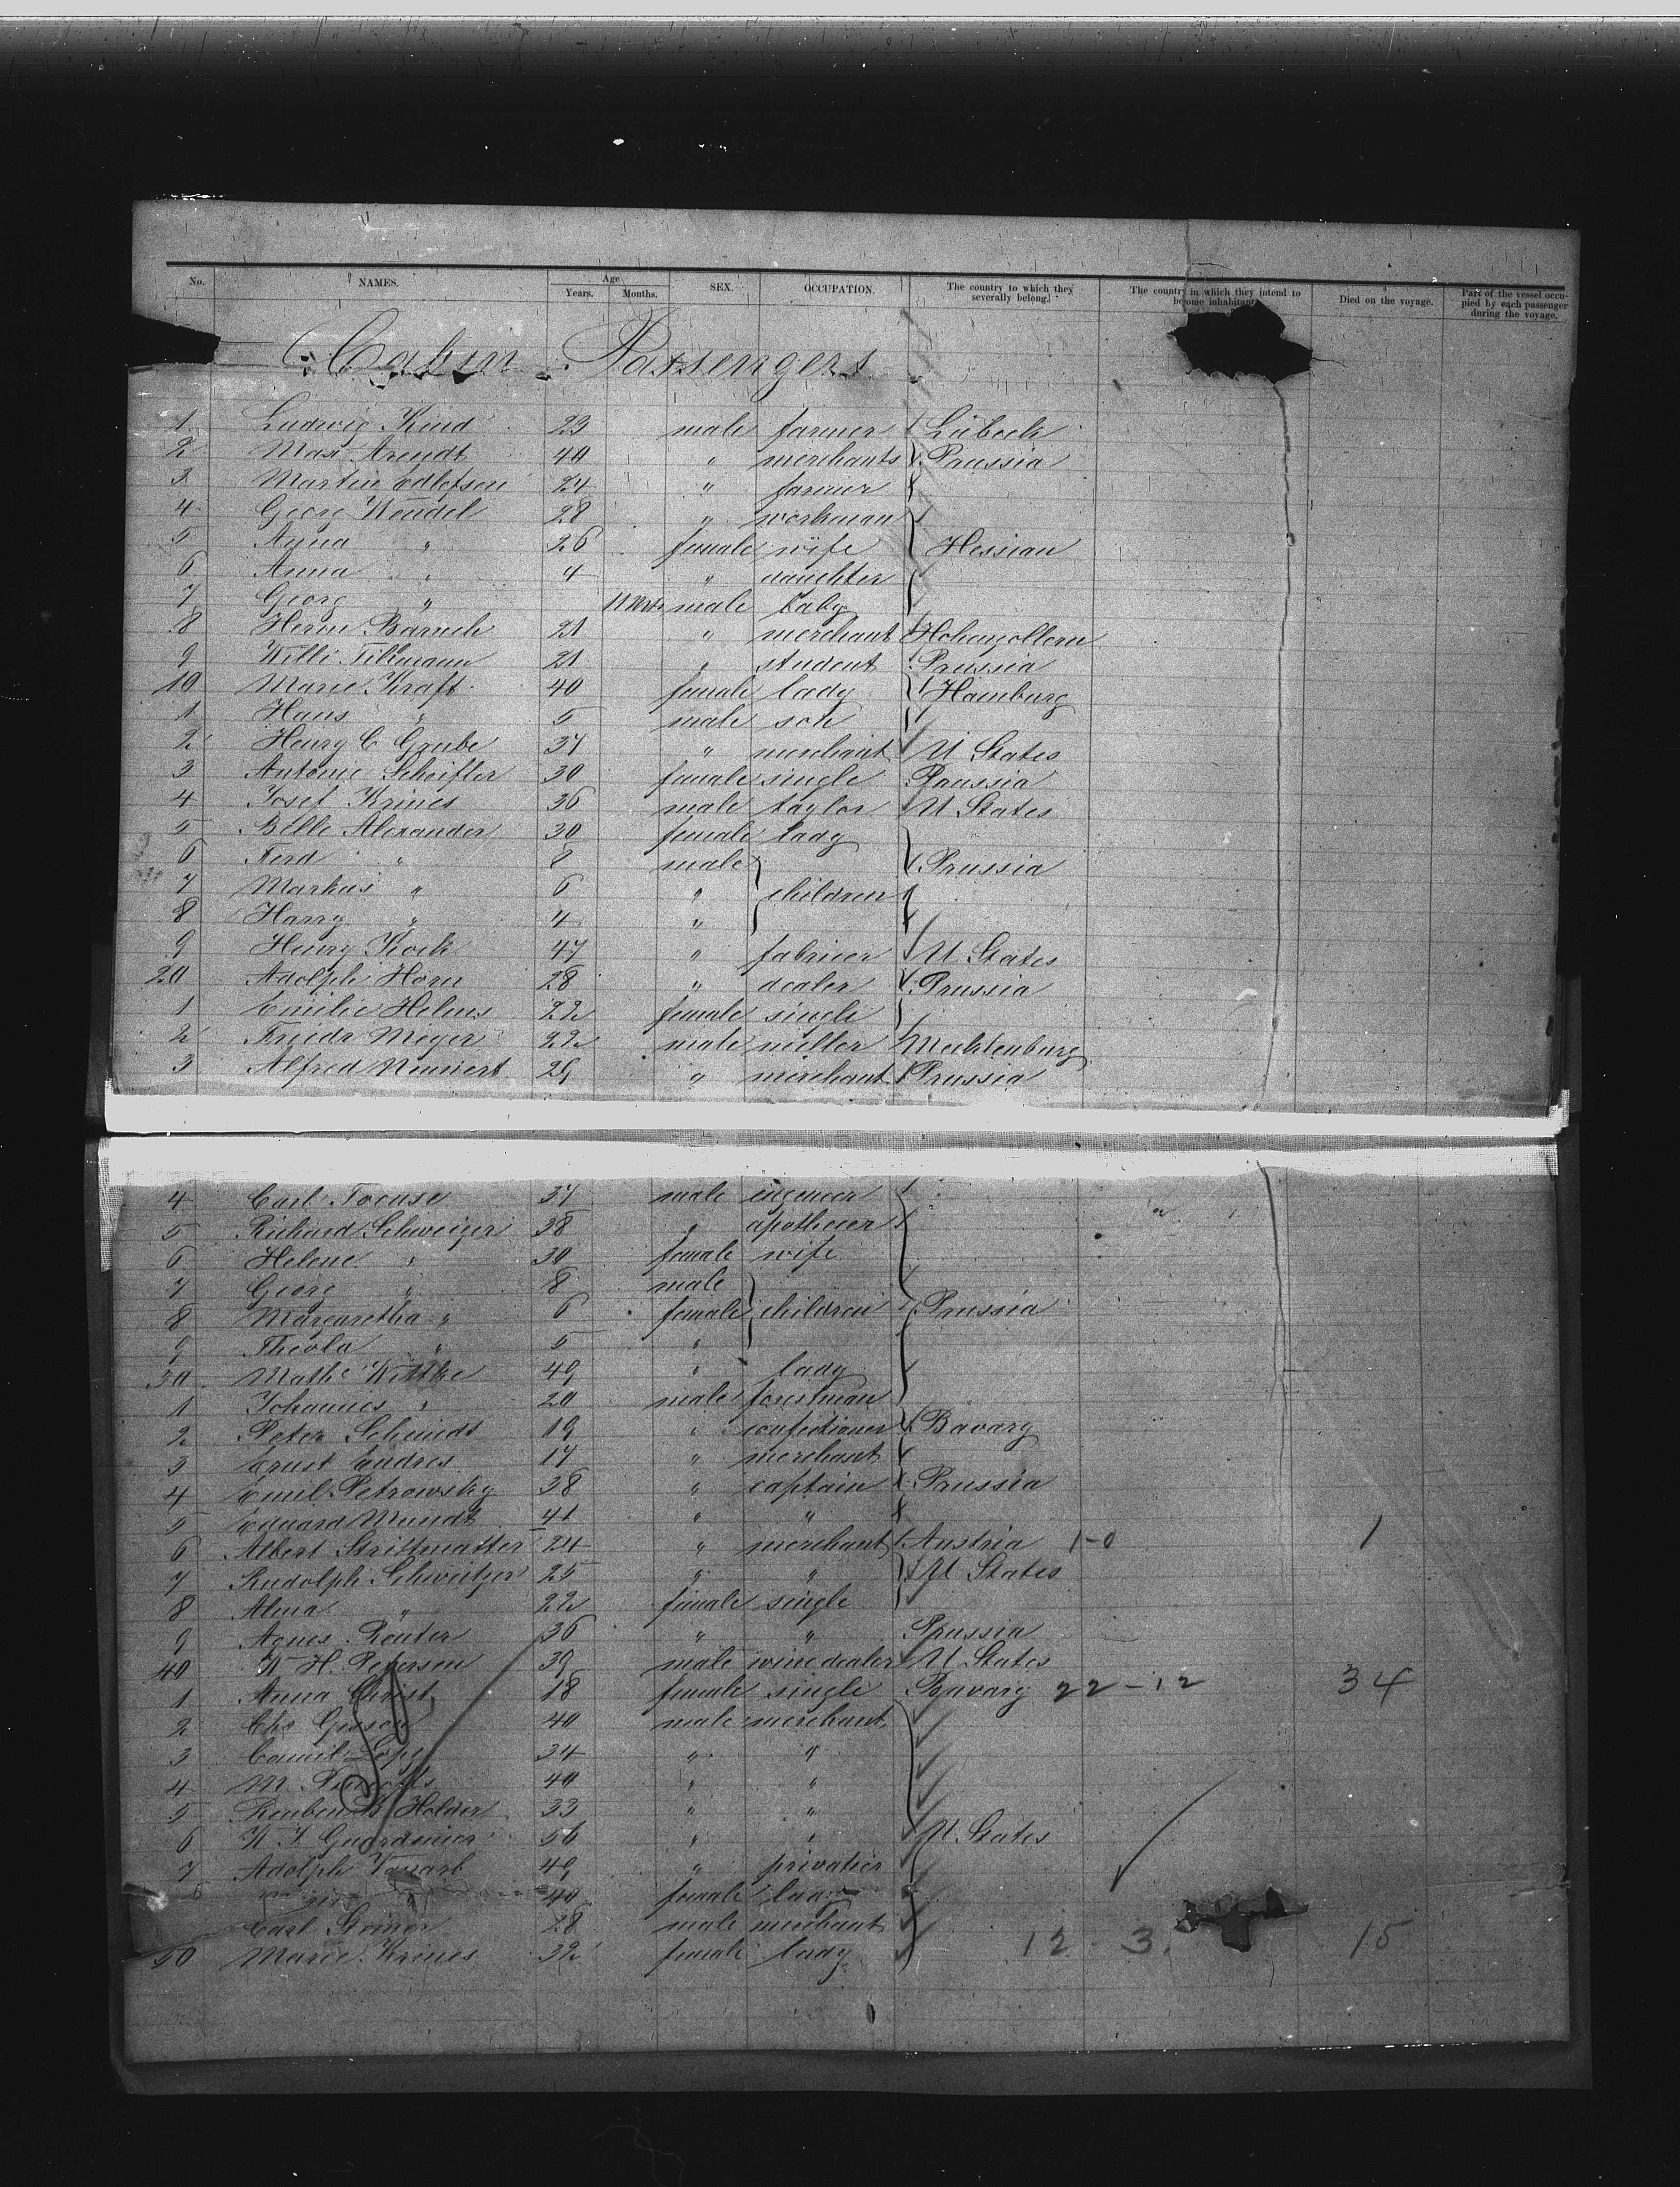 No. NAMES. Age Years. Months. SEX. OCCUPATION. The country to which they severally belong. The country in which they intend to become inhabitants Died on the voyage. Part of the vessel occupied by each passenger during the voyage.
Cabin Passengers
1 Ludwig Kind 23 male farmer Lübeck
2 Max Arendt 40 " merchants Prussia
3 Martin Edlefsen 24 " farmer
4 Georg Wendel 28 " workman
5 Anna " 26 female wife Hessian
6 Anna " 4 " daughter
7 Georg " 11 Mts male baby
8 Herm Baruch 21 " merchant Hohenzollern
9 Willi Tillmann 21 " student Prussia
10 Marie Kraft 40 female lady Hamburg
1 Hans " 5 male son
2 Henry C Grube 37 " merchant U States
3 Antonie Scheifler 30 female single Prussia
4 Josef Krines 36 male taylor U States
5 Belle Alexander 30 female lady
6 Ferd " 8 male Prussia
7 Markus " 6 " children
8 Harry " 4 "
9 Henry Koch 47 " fabricer U States
20 Adolph Horn 28 " dealer Prussia
1 Emilie Helms 22 female single
2 Friedr Meyer 22 male miller Mecklenburg
3 Alfred Meinert 29 " merchant Prussia
4 Carl 37 male engeneer
5 Richard Schweizer 38 " apothecer
6 Helene " 30 female wife
7 Georg " 8 male
8 Margaretha " 6 female children Prussia
9 Theola " 5 "
30 Mathe Wittke 49 " lady
1 Johannes " 20 male forestman
2 Peter Schmidt 19 " confectioner Bavary
3 Ernst Endres 17 " merchant
4 Emil Petrowsky 38 " captain Prussia
5 Eduard Mundt 41 " "
6 Albert Strittmatter 24 " merchant Austria 1-0 1
7 Rudolph Schweitzer 25 " " U States
8 Alma " 22 female single
9 Agnes Reuter 36 " " Prussia
40 W H. Petersen 39 male winedealer U States
1 Anna Christ 18 female single Bavary 22-12 34
2 Chs 40 male merchant
3 Camil 34 " "
4 M. 40 " "
5 Reuben B Holder 33 " "
6 56 " " U States
7 Adolph 49 " privatier
" 40 female lady
Carl 28 male merchant
50 Marie Krines 32 female lady 12 3. 15